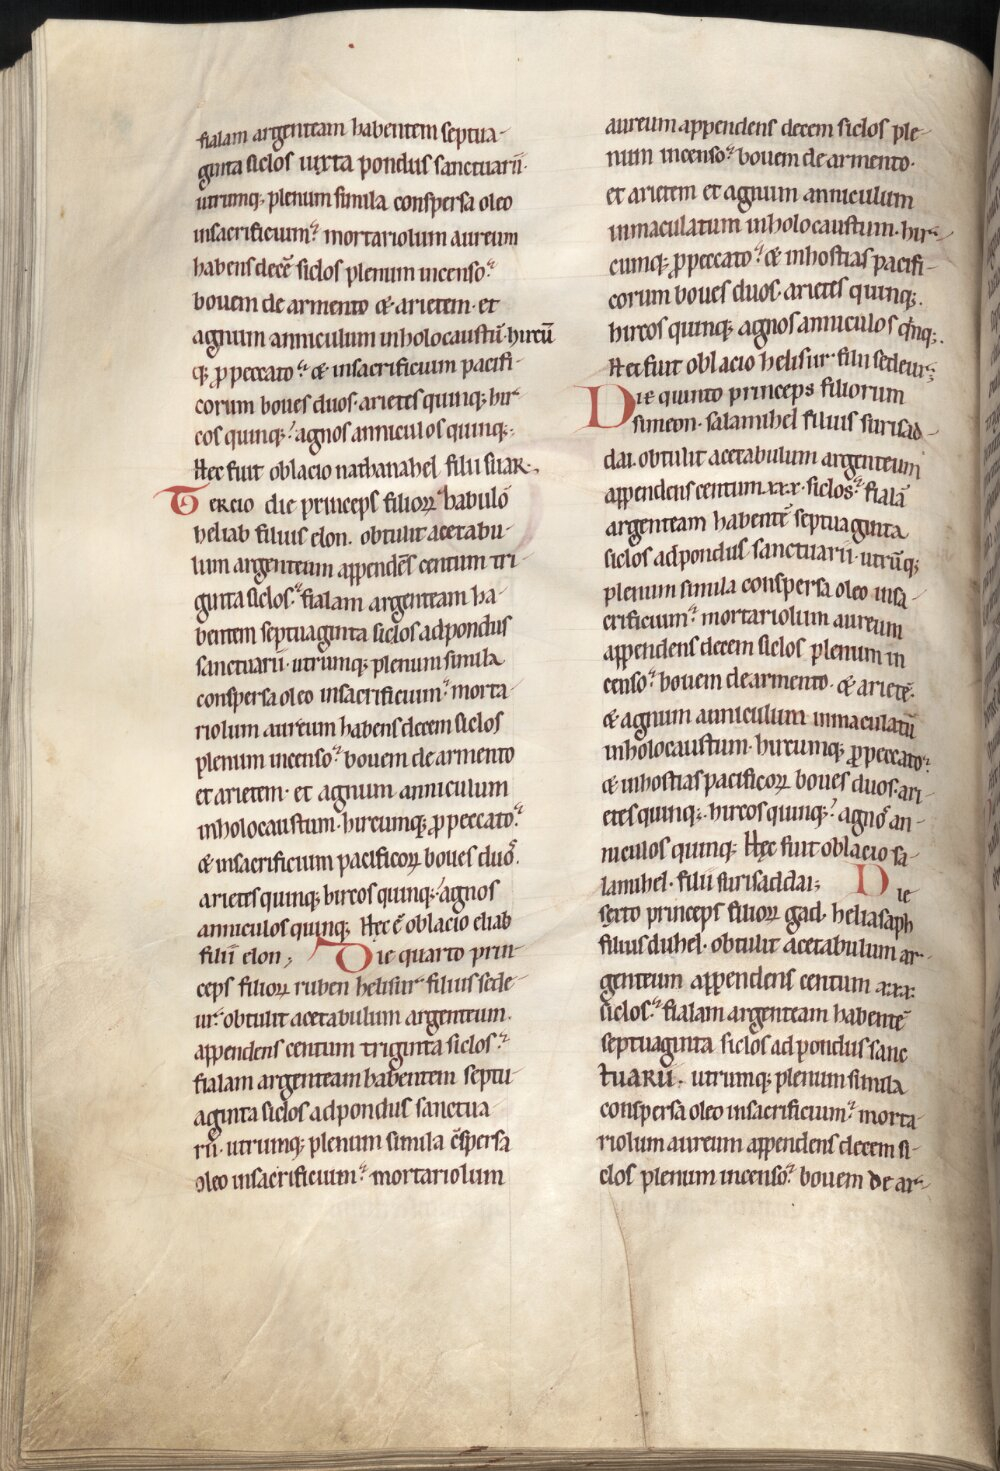 fialam argenteam habentem septua-
ginta siclos iuxta pondus sanctuarii·
utrumq; plenum simila conspersa oleo
insacrificium: mortariolum aureum
habens decē siclos plenum incenso:
bouem de armento & arietem· et
agnum anniculum inholocaustū· hircū
q; ꝓpeccato: & insacrificium pacifi-
corum boues duos· arietes quinq; hir-
cos quinq;: agnos anniculos quinq;:
Hec fuit oblacio nathanahel filii suar·,
Tercio die princeps filioꝝ habulō
heliab filius elon. obtulit acetabu-
lum argenteum appendēs centum tri-
ginta siclos: fialam argenteam ha-
bentem septuaginta siclos adpondus
sanctuarii· utrumq; plenum simila
conspersa oleo insacrificium: morta-
riolum aureum habens decem siclos
plenum incenso: bouem de armento
et arietem· et agnum anniculum
inholocaustum· hircumq; ꝓ peccato:
& insacrificium pacificoꝝ boues duos.
arietes quinq; hircos quinq;: agnos
anniculos quinq; Hęc ē oblacio eliab
filii elon; Die quarto prin-
ceps filioꝝ ruben helisur filius sede-
ur: obtulit acetabulum argenteum.
appendens centum triginta siclos:
fialam argenteam habentem septu-
aginta siclos adpondus sanctua
rii· utrumq; plenum simila c̄spersa
oleo insacrificium: mortariolum
aureum appendens decem siclos ple-
num incenso: bouem de armento·
et arietem et agnum anniculum
inmaculatum inholocaustum· hir-
cumq; ꝓpeccato: & inhostias pacifi-
corum boues duos· arietes quinq;.
hircos quinq; agnos anniculos q̇nq;.
Hec fuit oblacio helisur· filii sedeur;
Die quinto princeps filiorum
simeon· salamihel filius surisad-
dai. obtulit acetabulum argenteum
appendens centum xxx· siclos: fialā
argenteam habentē septuaginta
siclos adpondus sanctuarii· utrūq;
plenum simila conspersa oleo insa-
crificium: mortariolum aureum
appendens decem siclos plenum in
censo: bouem de armento· & arietē·
& agnum anniculum inmaculatū
inholocaustum· hircumq; ꝓpeccato:
& inhostias pacificoꝝ boues duos· ari-
etes quinq;· hircos quinq;: agnos an-
niculos quinq; Hęc fuit oblacio sa-
lamihel· filii surisaddai; Die
serto princeps filioꝝ gad· heliasaph
filius duhel· obtulit acetabulum ar-
genteum appendens centum xxx:
siclos: fialam argenteam habentē
septuaginta siclos ad pondus sanc
tuarii· utrumq; plenum simila
conspersa oleo insacrificium: morta-
riolum aureum appendens decem si-
clos plenum incenso: bouem de ar-